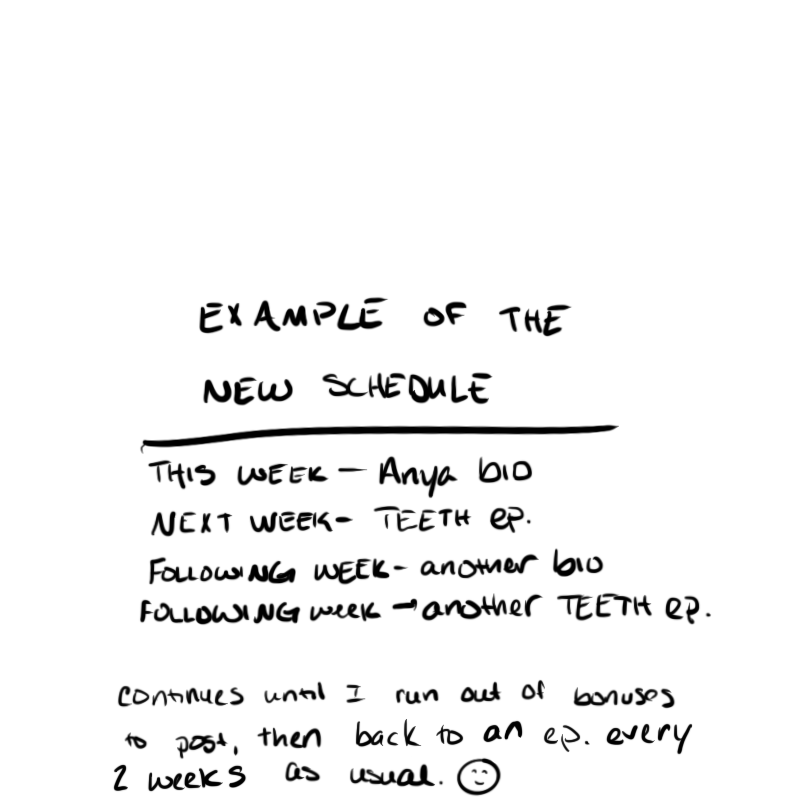 EXAMPLE OF THE
NEW SCHEDULE
THIS WEEK - Anya bio
NEXT WEEK - TEETH ep.
FOLLOWING WEEK - another bio
FOLLOWING week - another TEETH ep.
continues until I run out of bonuses
to post, then back to an ep. every
2 weeks as usual.